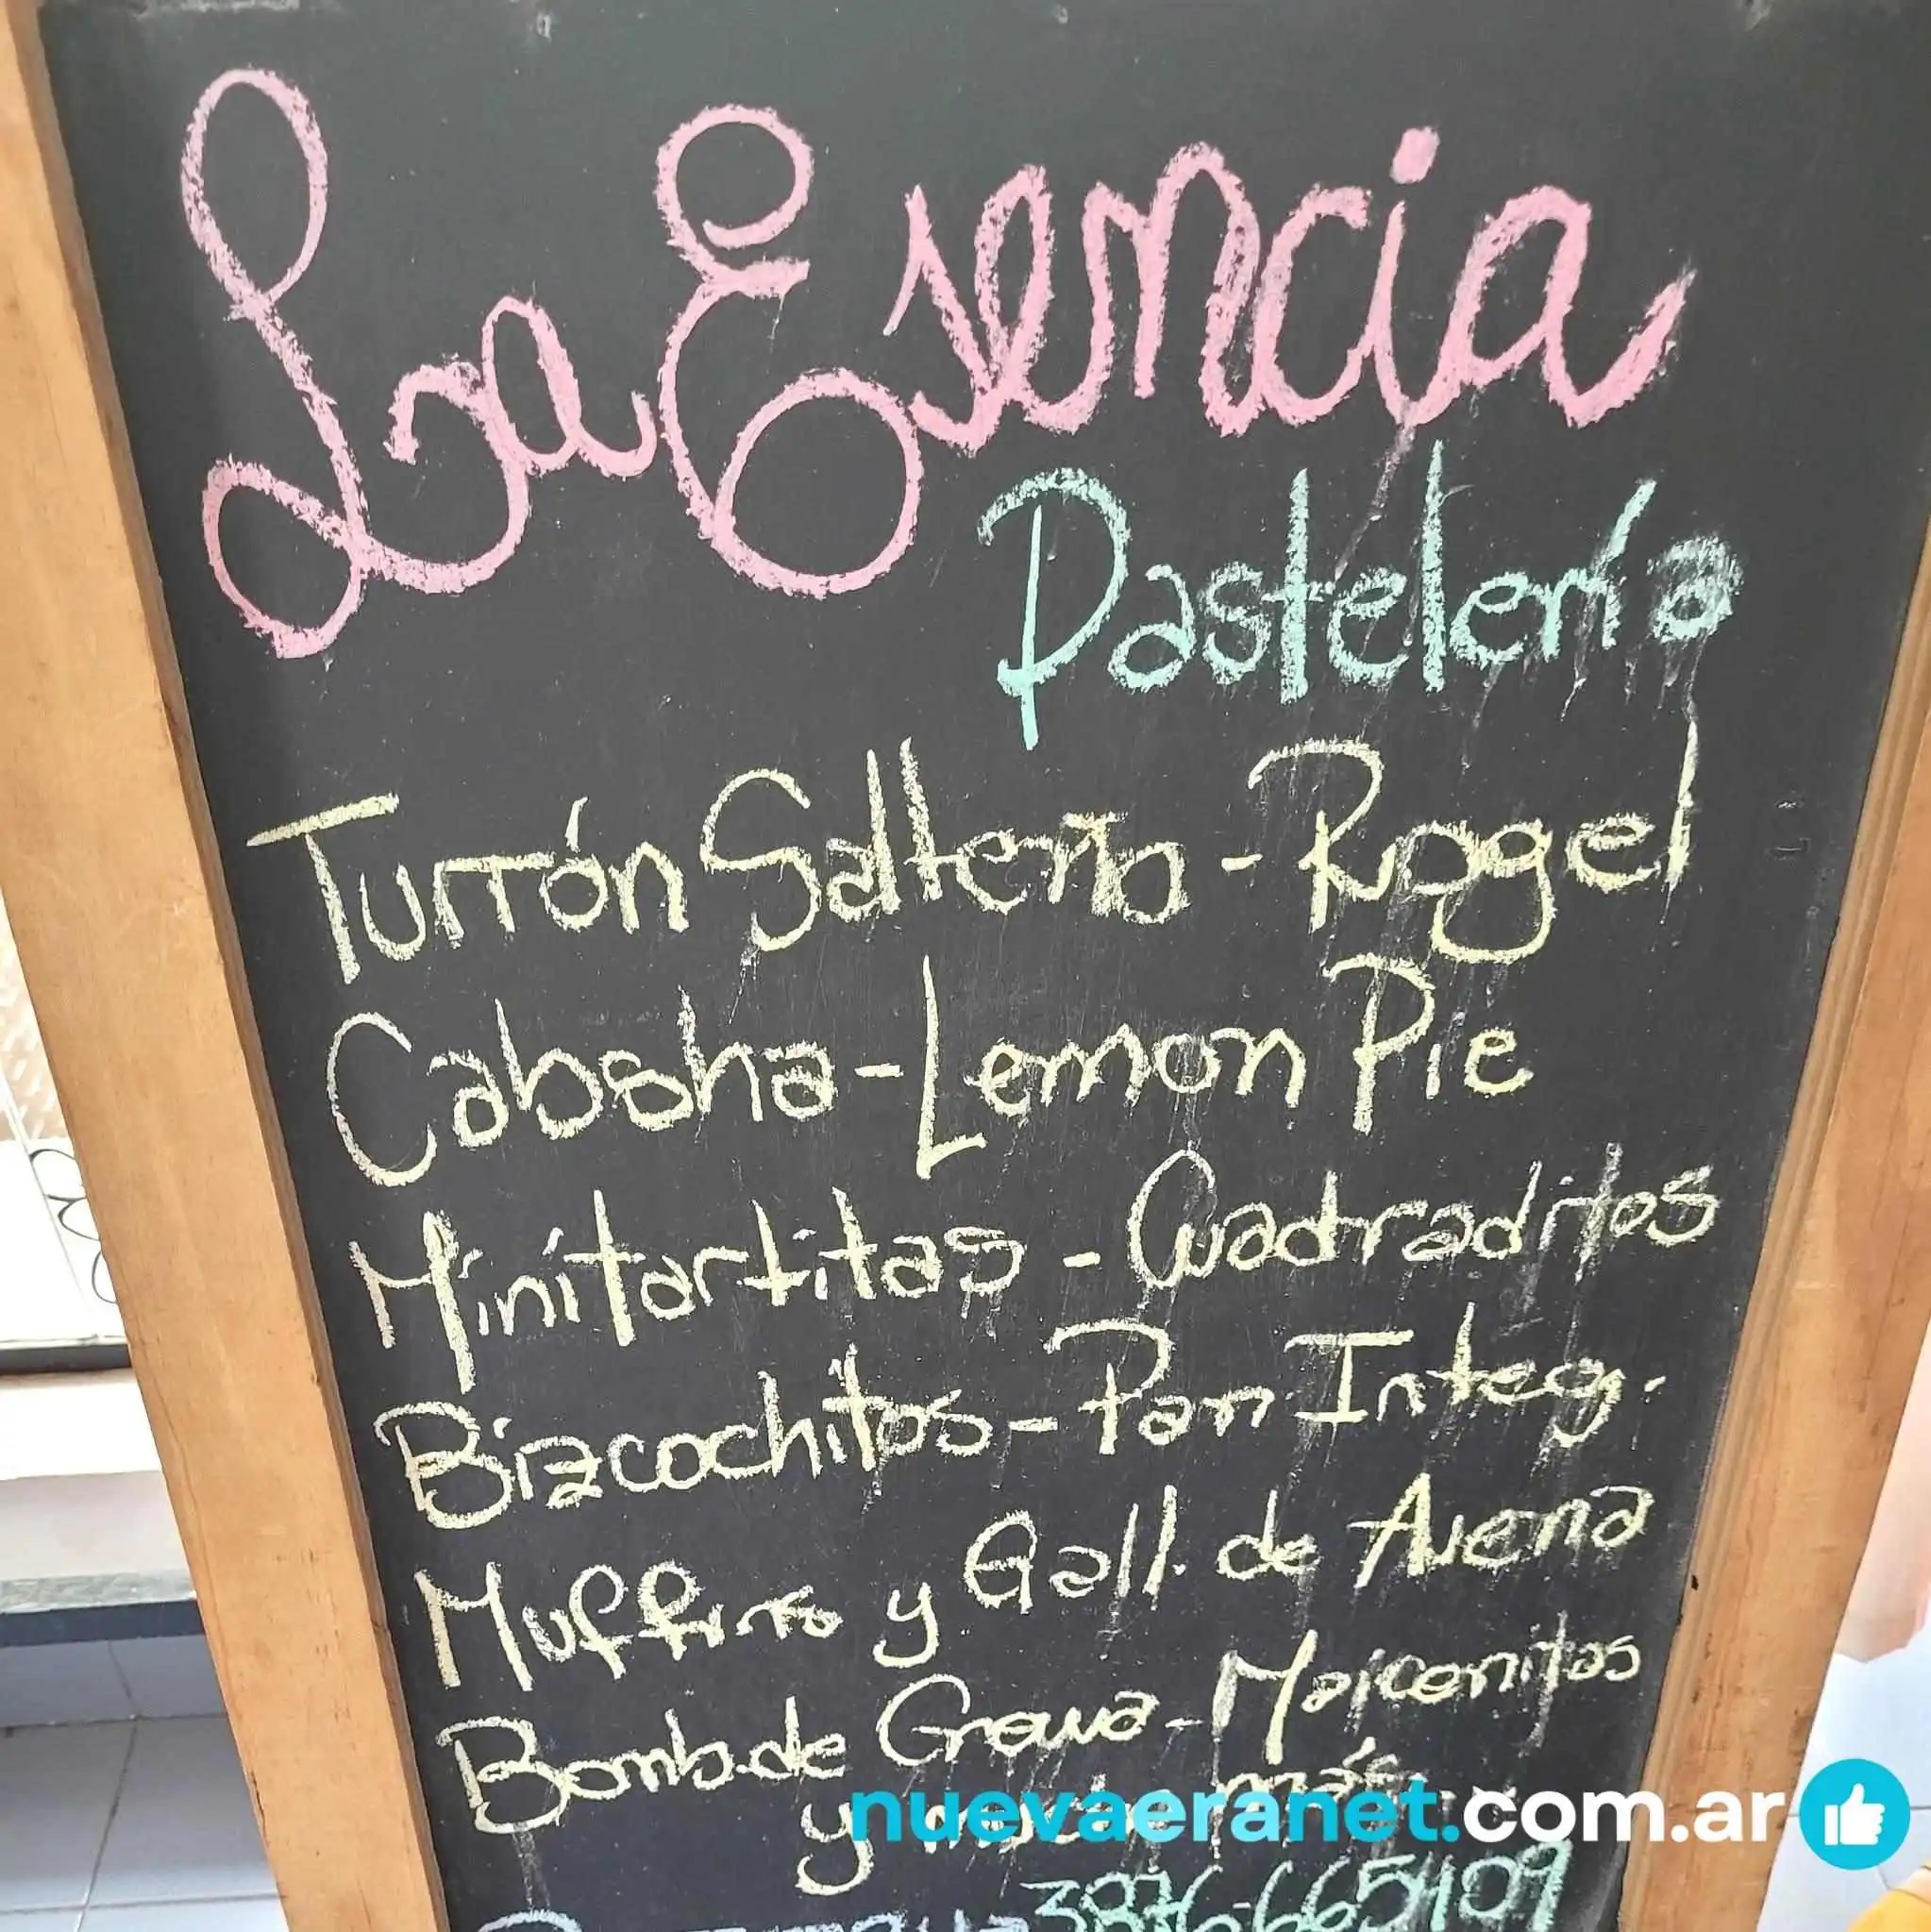 La Esencia
Pastelería
Turrón Salteño - Rogel
Cabsha - Lemon Pie
Minitartitas - Cuadraditos
Bizcochitos - Pan Integ.
Muffins y Gall. de Avena
Bomb. de Grava - Maicenitas
y más
nuevaeranet.com.ar
3876-665409